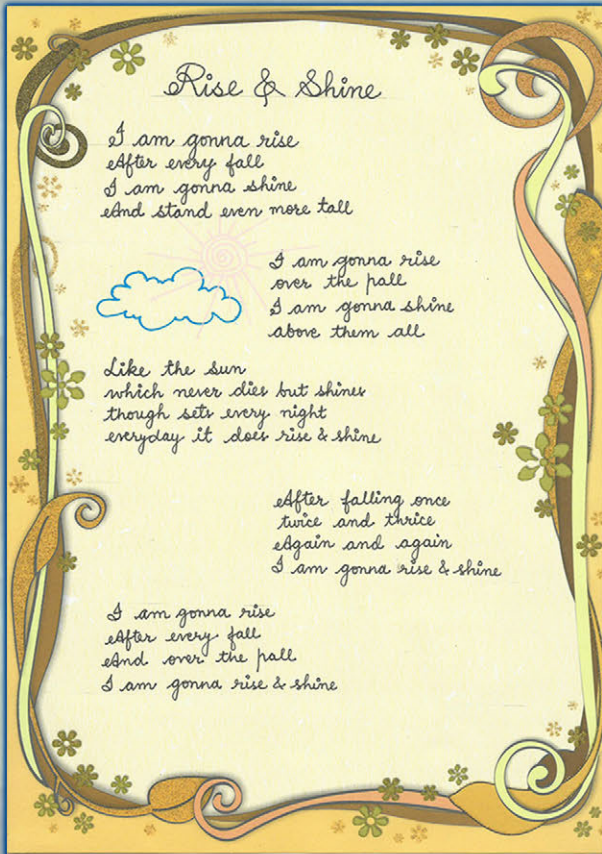 Rise & Shine
I am gonna rise
After every fall
I am gonna shine
And stand even more tall
I am gonna rise
over the pall
I am gonna shine
above them all
Like the sun
which never dies but shines
though sets every night
everyday it does rise & shine
After falling once
twice and thrice
Again and again
I am gonna rise & shine
I am gonna rise
After every fall
And over the pall
I am gonna rise & shine